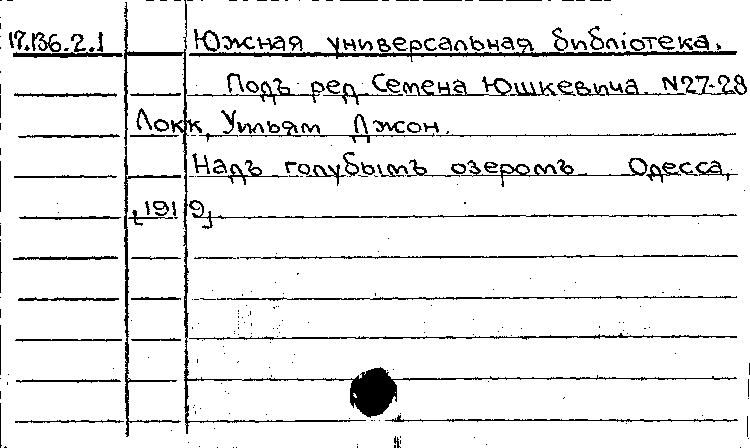 17.136.2.1 Южная универсальная библіотека.
Подъ ред. Семена Юшкевича. N27-28
Локк, Уильям Джон.
Надъ голубымъ озеромъ Одесса,
[1919].